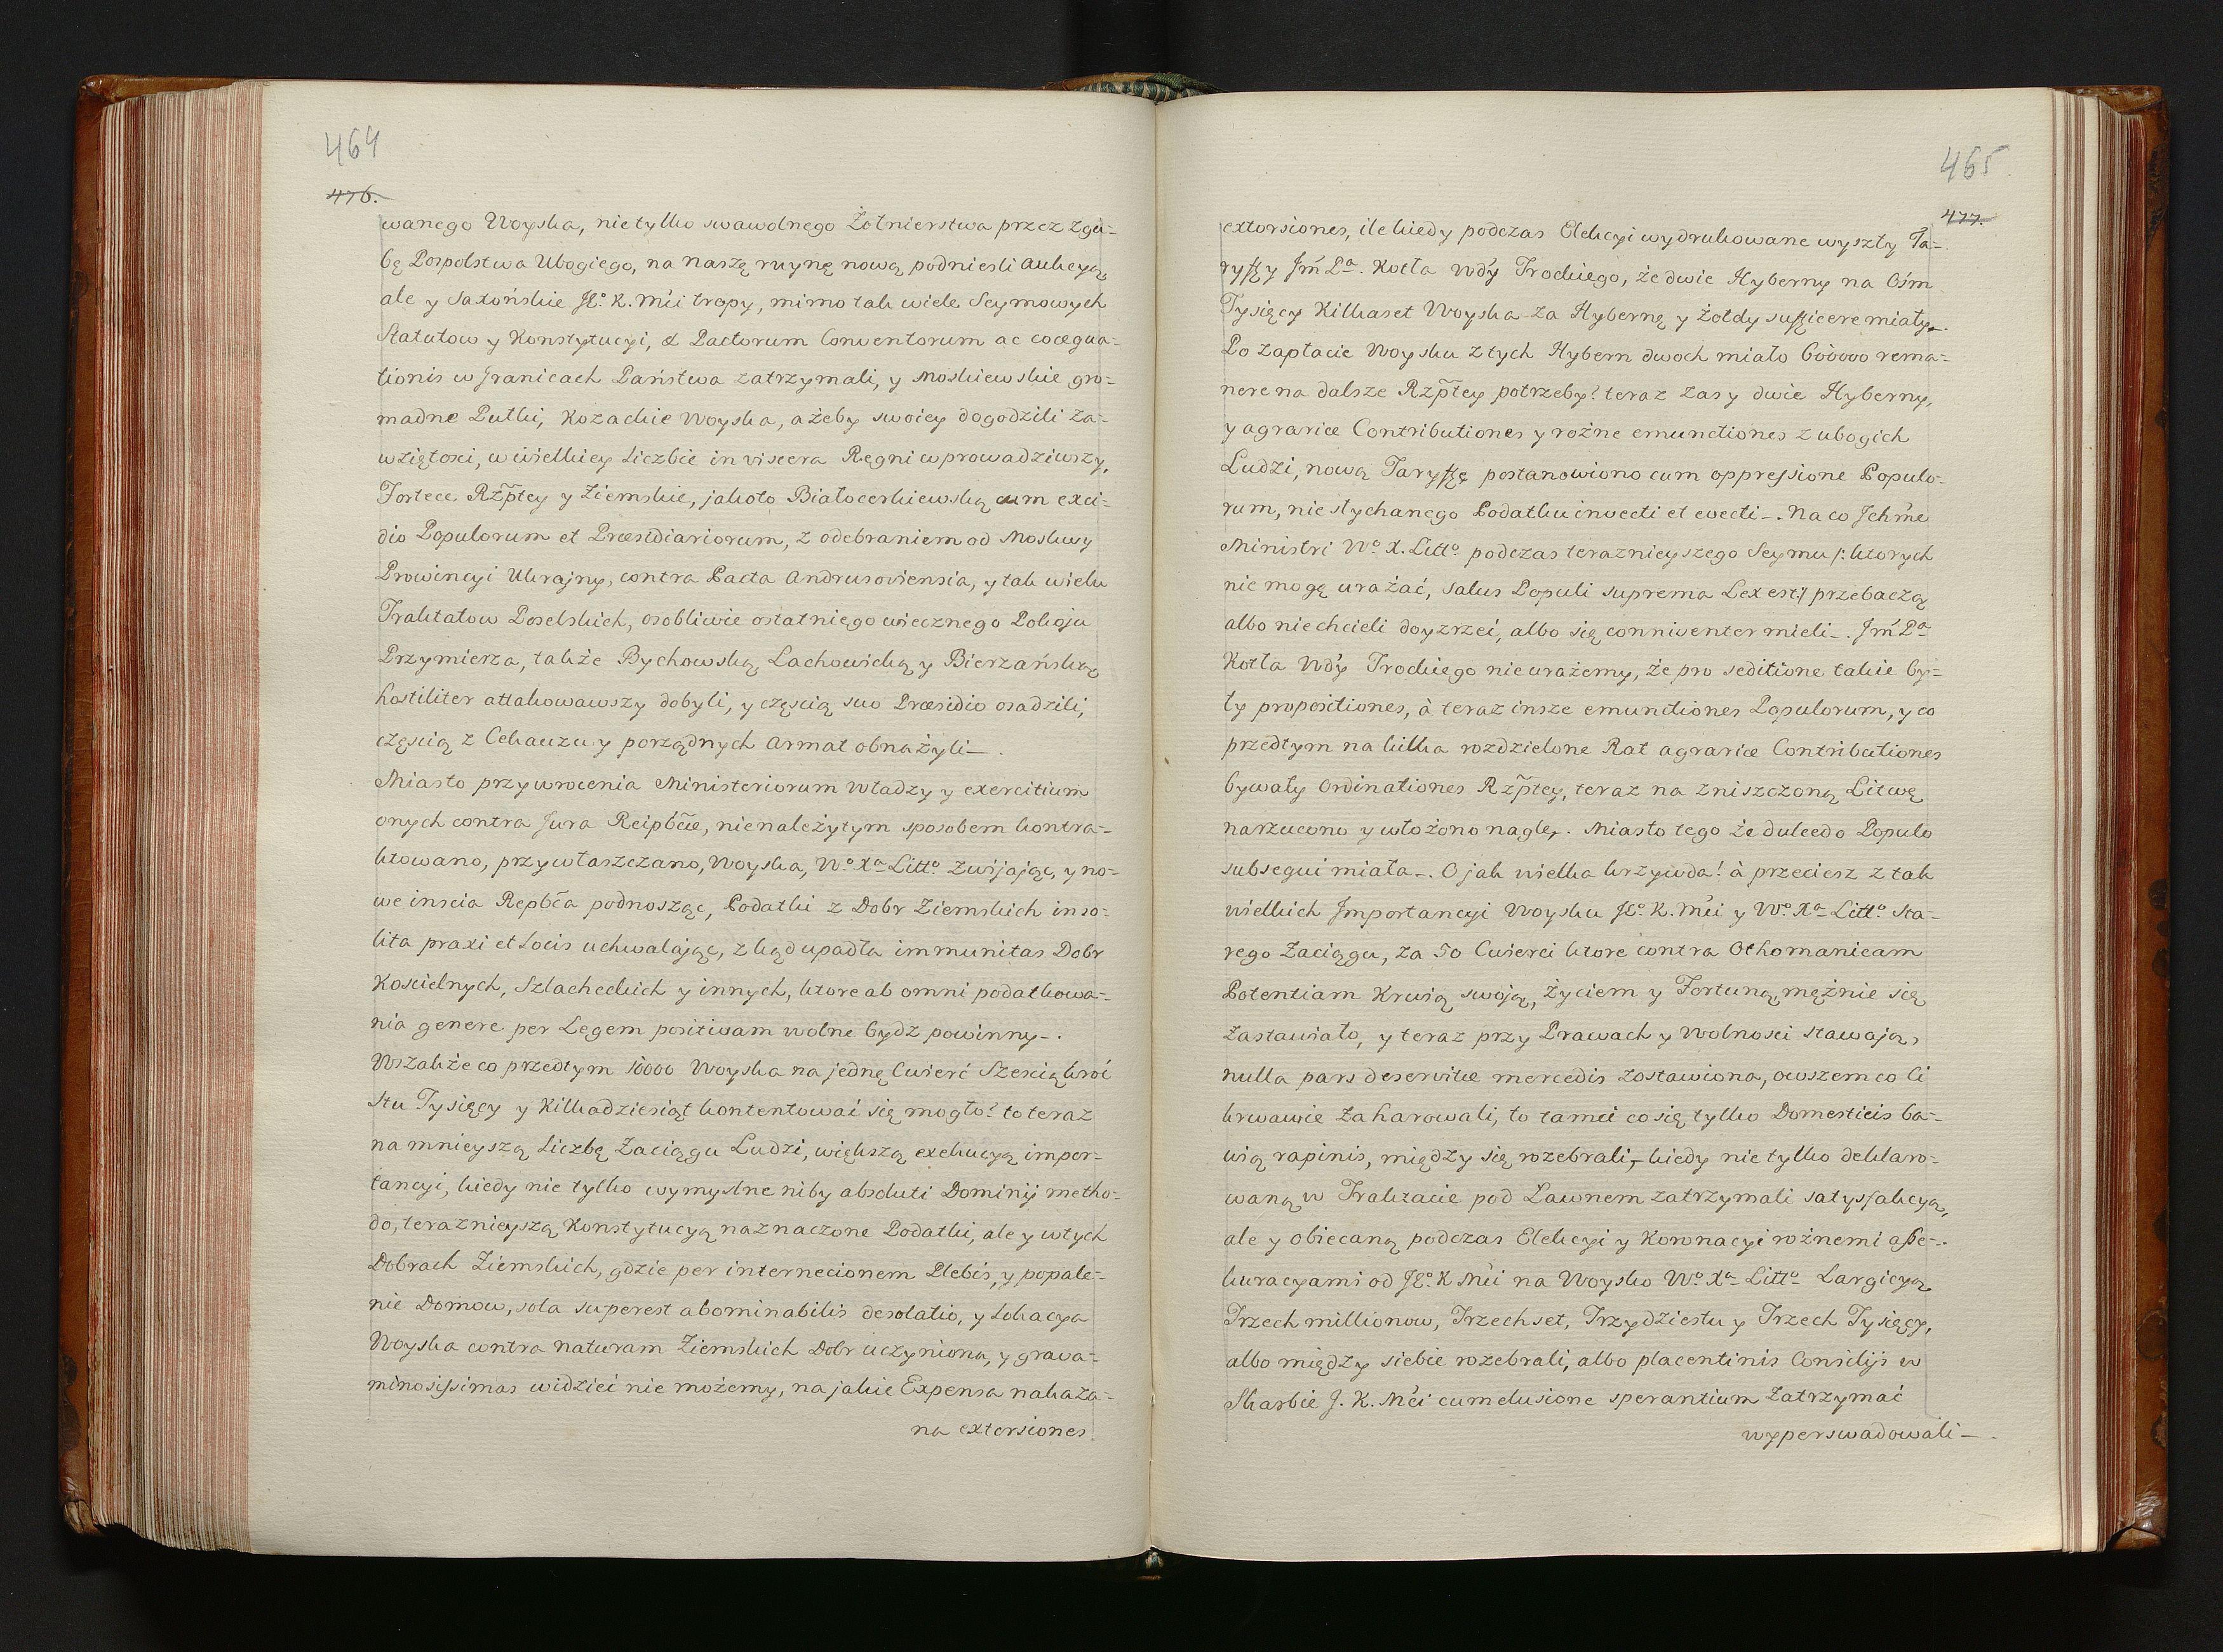 464
476.
wanego Woyska, nie tylko swawolnego Żołnierstwa przez zgu-
bę Pospolstwa Ubogiego, na naszę ruynę nową podniesli Aukcyą,
ale y Saxońskie JK°. K. Mći tropy, mimo tak wiele Seymowych
Statutow y Konstytucyi, & Pactorum Conventorum ac coæqua-
tionis w Granicach Państwa zatrzymali, y Moskiewskie gro-
madne Pułki, Kozackie Woyska, ażeby swoiey dogodzili za-
wziętosci, w wielkiey Liczbie in viscera Regni wprowadziwszy,
Fortece Rzp̃tey y Ziemskie, jakoto Białocerkiewską cum exci-
dio Populorum et Præsidiariorum, z odebraniem od Moskwy
Prowincyi Ukrajny, contra Pacta Andrusoviensia, y tak wielu
Traktatow Poselskich, osobliwie ostatniego wiecznego Pokoju
Przymierza, także Bychowską, Lachowicką y Bierzańską
hostiliter attakowawszy dobyli, y częscią suo Præsidio osadzili,
częscią z Cekauzu y porządnych Armat obnażyli—.
Miasto przywrocenia Ministeriorum Władzy y exercitium
onych contra Jura Reipb̃cæ, nienależytym sposobem kontra-
ktowano, przywłaszczano, Woyska, W° Xa Litt° zwijając, y no-
we inscia Repb̃ca podnosząc, Podatki z Dobr Ziemskich inso-
lita praxi et Locis uchwalając, zkąd upadła immunitas Dobr
Koscielnych, Szlacheckich y innych, ktore ab omni podatkowa-
nia genere per Legem positivam wolne bydz powinny—.
Wszakże co przedtym 10000 Woyska na jednę Cwierć Szescią kroć
Stu Tysięcy y Kilkadziesiąt kontentować się mogło? to teraz
na mnieyszą Liczbę Zaciągu Ludzi, większą exekucyą impor-
tancyi, kiedy nie tylko wymyslne niby absoluti Dominij metho-
do, terazniejszą Konstytucyą naznaczone Podatki, ale y w tych
Dobrach Ziemskich, gdzie per internecionem Plebis, y popale-
nie Domow, sola superest abominabilis desolatio, y Lokacya
Woyska contra naturam Ziemskich Dobr uczyniona, y grava-
minosissimas widzieć nie możemy, na jakie Expensa nakaza-
na extorsiones
465
477.
extorsiones, ile kiedy podczas Elekcyi wydrukowane wyszły Ta-
ryffy Jm̃ Pa. Kotła Wdy Trockiego, że dwie Hyberny na Ośm
Tysięcy Kilkaset Woyska za Hybernę y żołdy sufficere miały—.
Po zapłacie Woysku z tych Hybern dwoch miało 600000 rema-
nere na dalsze Rzp̃tey potrzeby? teraz zasy dwie Hyberny,
y agrariæ Contributiones y rożne emunctiones z ubogich
Ludzi, nową Taryffę postanowiono cum oppressione Populo-
rum, niesłychanego Podatku invecti et evecti—. Na co Jchm̃e
Ministri W° X. Litt° podczas teraznieyszego Seymu /: ktorych
nie mogę urażać, salus Populi suprema Lex est :/ przebaczą
albo niechcieli doyzrzeć, albo się conniventer mieli—. Jm̃ Pa
Kotła Wdy Trockiego nie urażemy, że pro seditione takie by-
ły propositiones, à teraz insze emunctiones Populorum, y co
przedtym na kilka rozdzielone Rat agrariæ Contributiones
bywały Ordinationes Rzp̃tey, teraz na zniszczoną Litwę
narzucono y włożono nagle—. Miasto tego że dulcedo Populo
subsequi miała—. O jak wielka krzywda! à przeciesz z tak
wielkich Importancyi Woysku JK° K. Mći y W° Xa Litt° Sta-
rego Zaciągu, za 50 Cwierci ktore contra Othomanicam
Potentiam Krwią swoją, Życiem y Fortuną, mężnie się
zastawiało, y teraz przy Prawach y Wolnosci stawają,
nulla pars deservitæ mercedis zostawiona, owszem co Ci
krwawie zaharowali, to tamci co się tylko Domesticis ba-
wią rapinis, między się rozebrali, kiedy nie tylko deklaro-
waną w Traktacie pod Ławnem zatrzymali satysfakcyą,
ale y obiecaną podczas Elekcyi y Koronacyi rożnemi asse-
kuracyami od JK° K Mći na Woysko W° Xa Litt° Largicyą
Trzech millionow, Trzechset, Trzydziestu y Trzech Tysięcy,
albo między siebie rozebrali, albo placentinis Consilijs w
Skarbie J. K. Mći cum elusione sperantium zatrzymać
wyperswadowali—